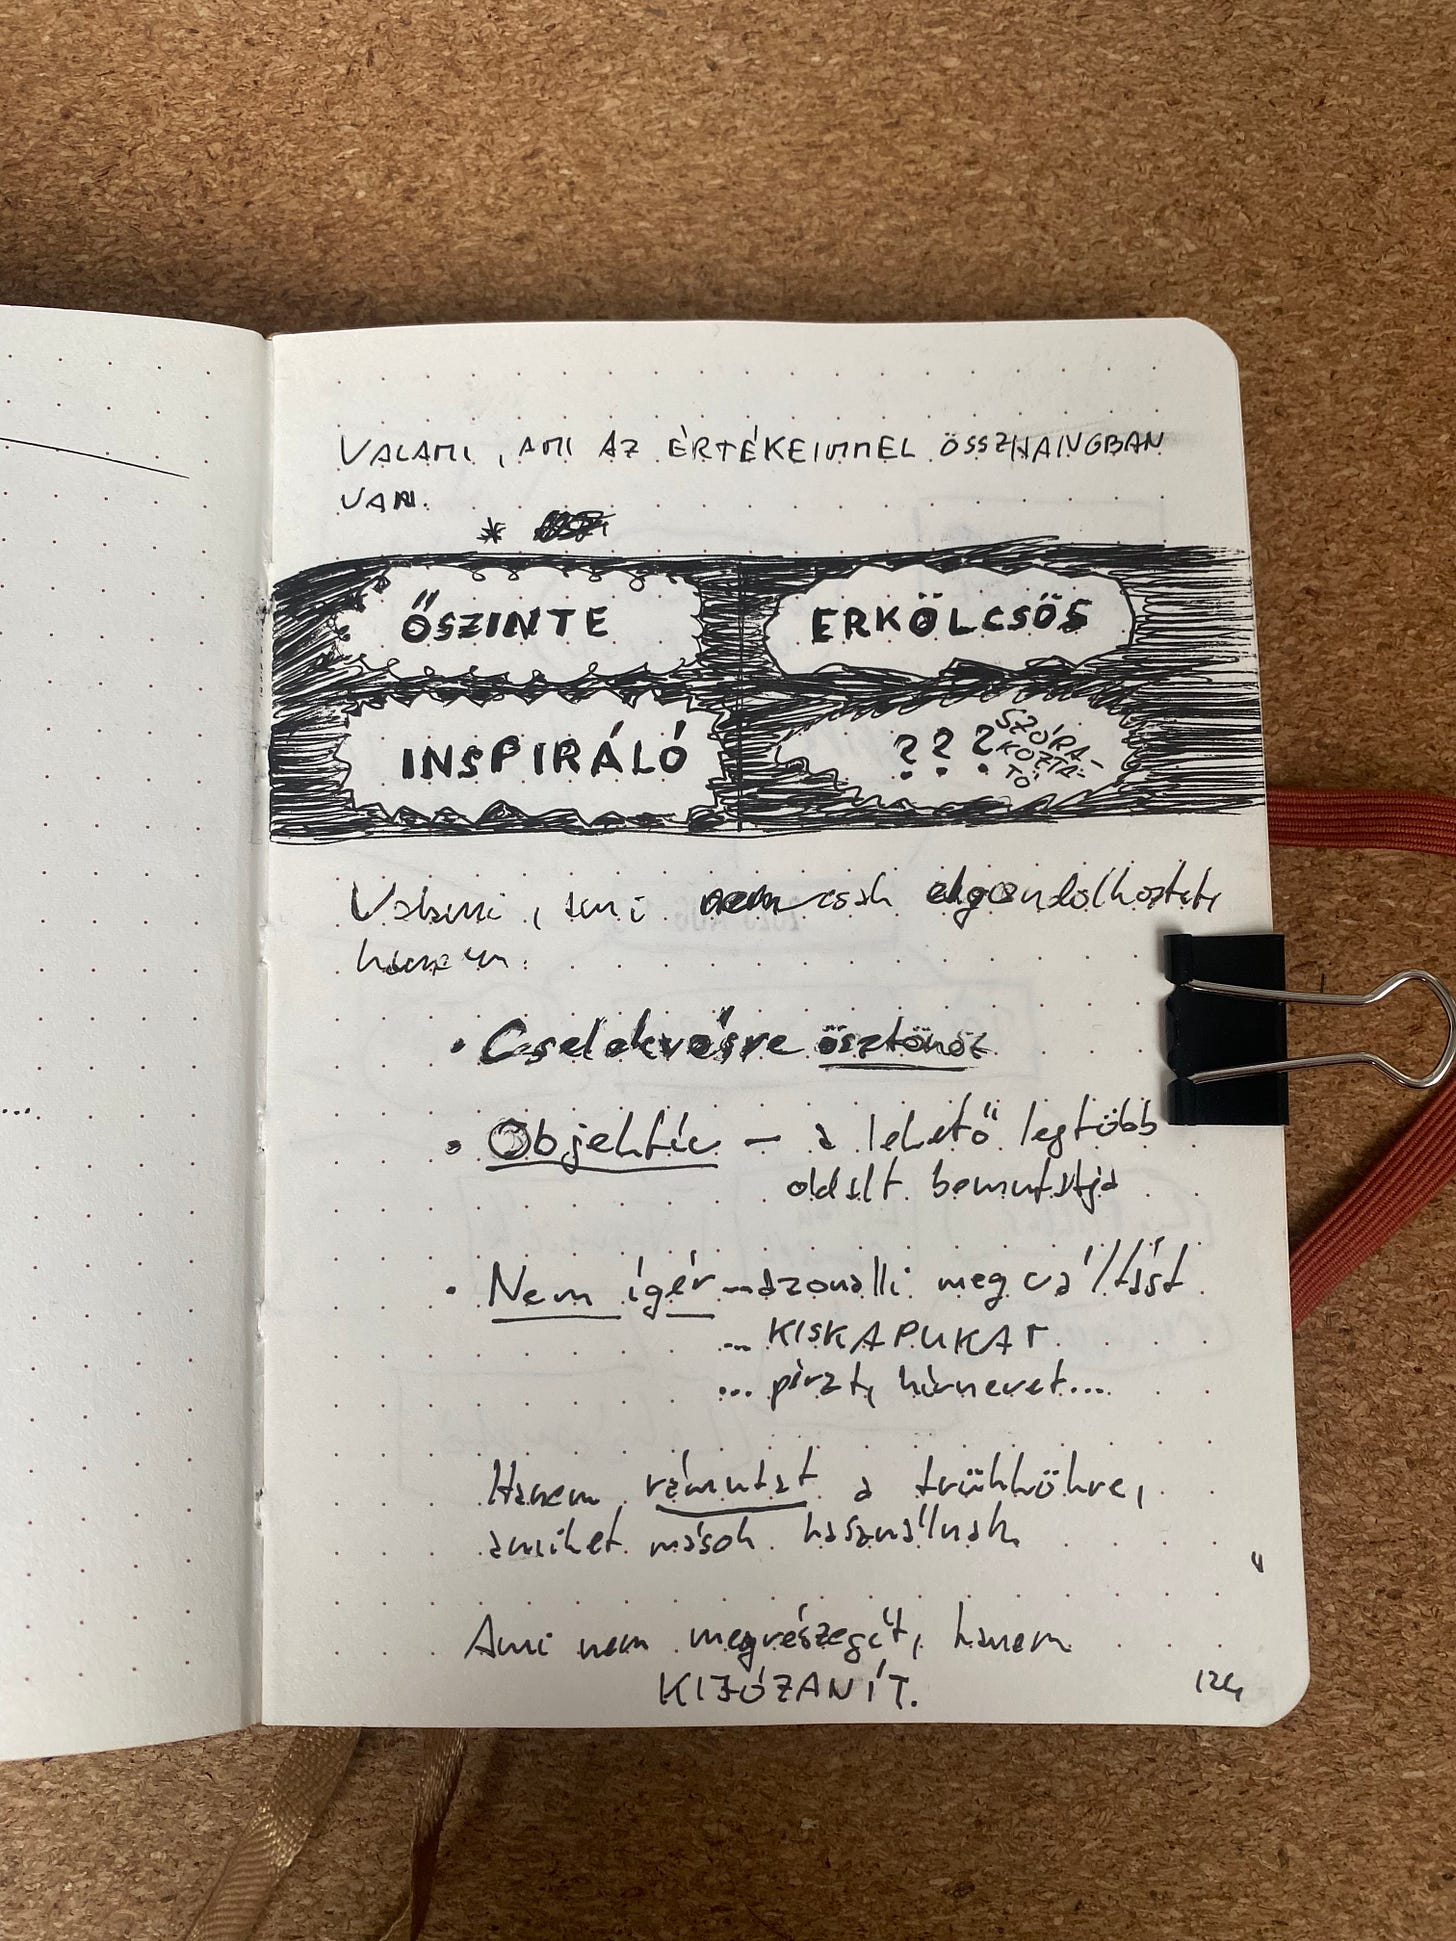 VALAMI, AMI AZ ÉRTÉKEIMMEL ÖSSZHANGBAN
VAN.
*
ŐSZINTE
ERKÖLCSÖS
INSPIRÁLÓ
??? SZÓRA-
KOZTA-
TÓ
Valami, ami nem csak elgondolkoztat,
hanem:
• Cselekvésre ösztönöz
• Objektív – a lehető legtöbb
oldalt bemutatja
• Nem ígér ...azonalli megváltást
... KISKAPUKAT
... pénzt, hírnevet...
Hanem rámutat a trükkökre,
amiket mások használnak
Ami nem megrészegít, hanem
KIJÓZANÍT.
124